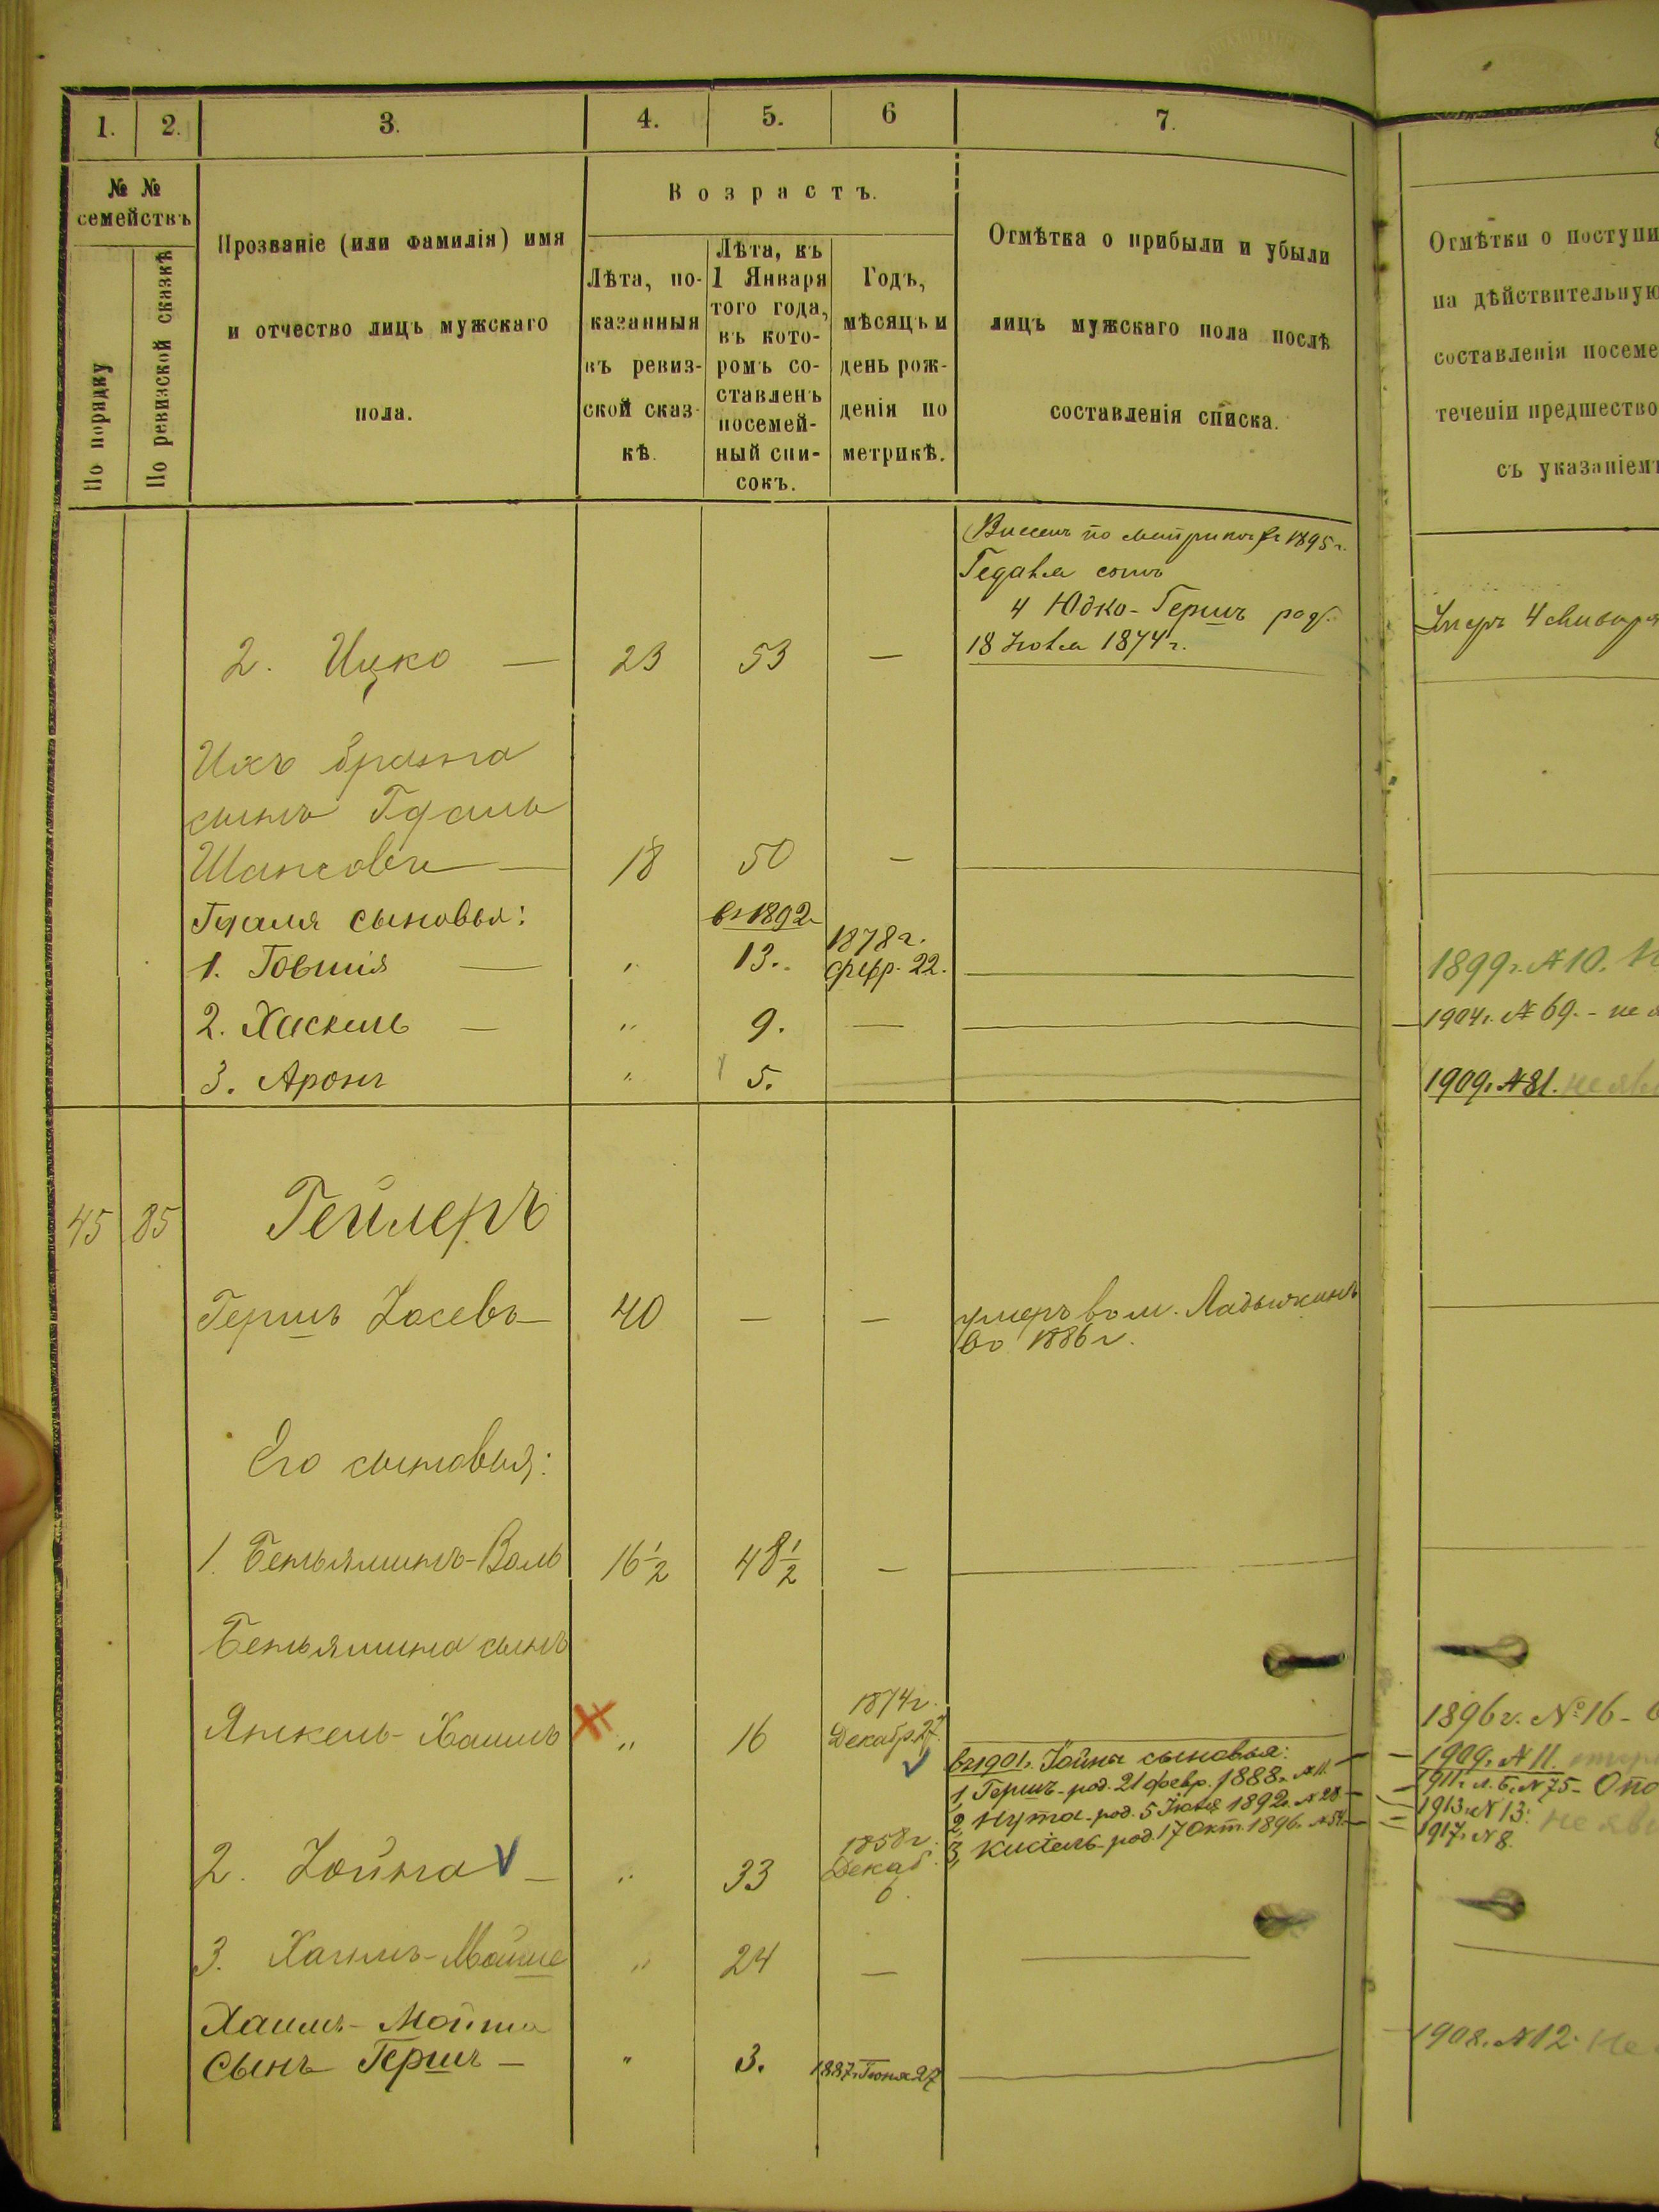 1. 2. 3. 4. 5. 6 7.
№ № семействъ
По порядку
По ревизской сказкѣ
Прозваніе (или фамилія) имя
и отчество лицъ мужскаго
пола.
Возрастъ.
Лѣта, по-
казанныя
въ ревиз-
ской сказ-
кѣ.
Лѣта, къ
1 Января
того года,
въ кото-
ромъ со-
ставленъ
посемей-
ный спи-
сокъ.
Годъ,
мѣсяцъ и
день рож-
денія по
метрикѣ.
Отмѣтка о прибыли и убыли
лицъ мужскаго пола послѣ
составленія списка.
Отмѣтки о поступи
на дѣйствительную
составленія посеме
теченіи предшество
съ указаніем
1895 г.
4 Юдко-Гершъ род.
18 1874 г.
2. Ицко — 23 53 —
Умеръ 4
Ихъ брата
сынъ Гдаль
18 50 —
Гдаля сыновья:
въ 1892
1. Говшія — " 13. 1878 г. февр. 22.
1899 г. № 10.
2. Хаскель — " 9. —
1904 г. № 69. - не
3. Аронъ " 5.
1909 г. № 81. не яв
45 85 Гейлеръ
Гершъ Іосевъ — 40 — —
умеръ в м. Ладыжинъ
во 1886 г.
Его сыновья:
1. Беньяминъ-Волъ 16½ 48½ —
Беньямина сынъ
Янкель-Хаимъ " 16 1874 г. Декабр. 27.
1896 г. № 16 -
въ 1901 г. Іойны сыновья:
1, Гершъ - род. 21 февр. 1888 г. № 11. —
— 1909 г. № 11.
2, Нута - род. 5 1892 г. № 28 —
1911 г. № 75 -
3, Кисіель - род. 17 Окт. 1896 г. —
1913 г. № 13. не яви
1917 г. № 8.
2. Іойна — " 33 1858 г. Декаб. 6.
3. Хаимъ-Мойше " 24 —
Хаимъ-Мойши
Сынъ Гершъ — " 3. 1887 г. Іюня 27
1908 г. № 12. Не